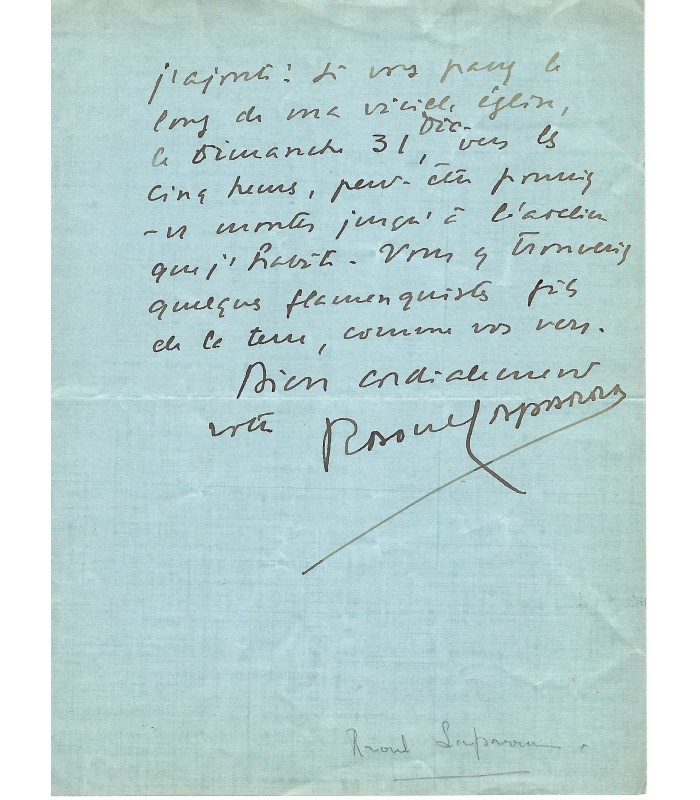 j'ajoute : Si vous passez le
long de ma vieille église,
le Dimanche 31 Déc., vers les
cinq heures, peut-être pourriez
-vs monter jusqu'à l'atelier
que j'habite. Vous y trouverez
quelques flamenquistes fils
de la terre, comme vos vers.
Bien cordialement
votre Raoul Laparra
Raoul Laparra.